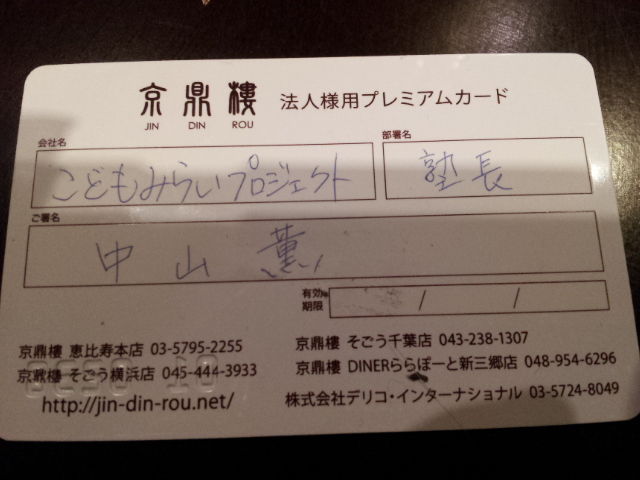 京鼎樓 法人様用プレミアムカード
JIN DIN ROU
会社名 部署名
こどもみらいプロジェクト 塾長
ご署名
中山 薫
有効期限 / /
京鼎樓 恵比寿本店 03-5795-2255
京鼎樓 そごう千葉店 043-238-1307
京鼎樓 そごう横浜店 045-444-3933
京鼎樓 DINERららぽーと新三郷店 048-954-6296
http://jin-din-rou.net/
株式会社デリコ・インターナショナル 03-5724-8049